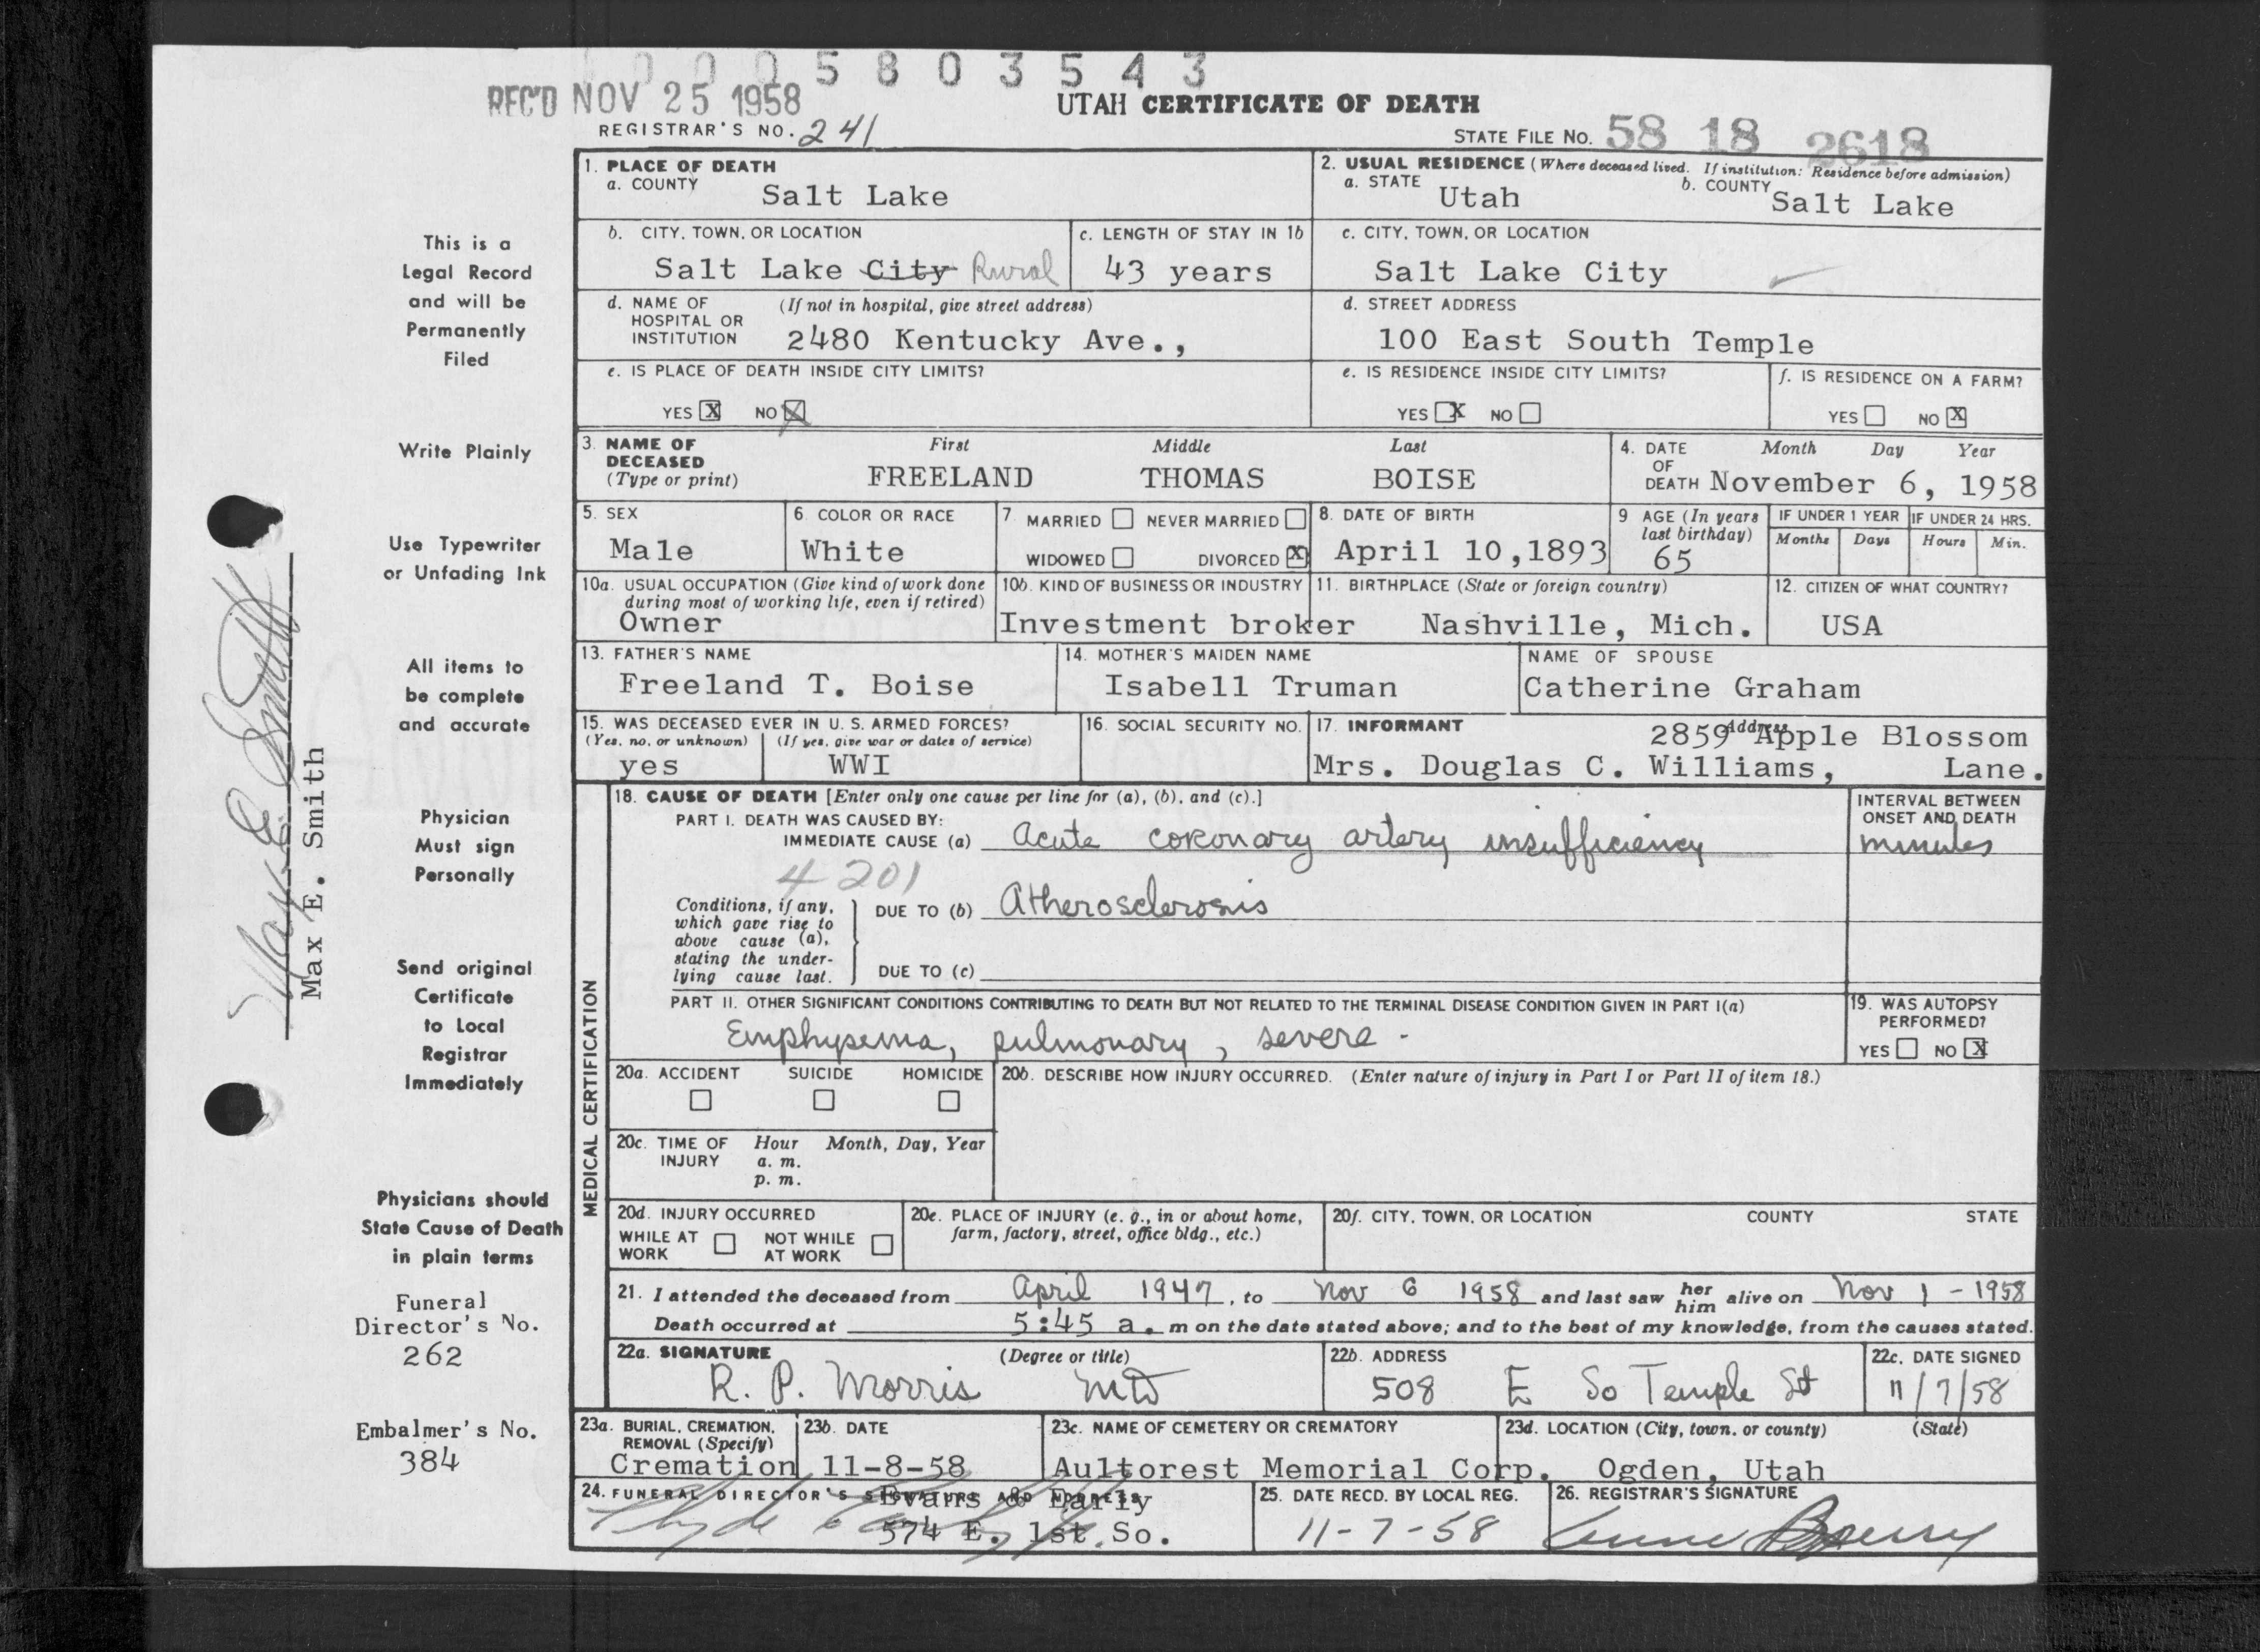 0005803543
REC'D NOV 25 1958
UTAH CERTIFICATE OF DEATH
REGISTRAR'S NO. 241
STATE FILE NO. 58 18 2618
This is a
Legal Record
and will be
Permanently
Filed
Write Plainly
Use Typewriter
or Unfading Ink
All items to
be complete
and accurate
Physician
Must sign
Personally
Send original
Certificate
to Local
Registrar
Immediately
Physicians should
State Cause of Death
in plain terms
Funeral
Director's No.
262
Embalmer's No.
384
Max E. Smith
Max E. Smith
1. PLACE OF DEATH
a. COUNTY Salt Lake
2. USUAL RESIDENCE (Where deceased lived. If institution: Residence before admission)
a. STATE Utah b. COUNTY Salt Lake
b. CITY, TOWN, OR LOCATION
Salt Lake City Rural
c. LENGTH OF STAY IN 1b
43 years
c. CITY, TOWN, OR LOCATION
Salt Lake City
d. NAME OF (If not in hospital, give street address)
HOSPITAL OR
INSTITUTION 2480 Kentucky Ave.,
d. STREET ADDRESS
100 East South Temple
e. IS PLACE OF DEATH INSIDE CITY LIMITS?
YES X NO X
e. IS RESIDENCE INSIDE CITY LIMITS?
YES X NO
f. IS RESIDENCE ON A FARM?
YES NO X
3. NAME OF DECEASED (Type or print)
First Middle Last
FREELAND THOMAS BOISE
4. DATE OF DEATH Month Day Year
November 6, 1958
5. SEX
Male
6. COLOR OR RACE
White
7. MARRIED NEVER MARRIED
WIDOWED DIVORCED X
8. DATE OF BIRTH
April 10,1893
9 AGE (In years last birthday)
65
IF UNDER 1 YEAR IF UNDER 24 HRS.
Months Days Hours Min.
10a. USUAL OCCUPATION (Give kind of work done
during most of working life, even if retired)
Owner
10b. KIND OF BUSINESS OR INDUSTRY
Investment broker
11. BIRTHPLACE (State or foreign country)
Nashville, Mich.
12. CITIZEN OF WHAT COUNTRY?
USA
13. FATHER'S NAME
Freeland T. Boise
14. MOTHER'S MAIDEN NAME
Isabell Truman
NAME OF SPOUSE
Catherine Graham
15. WAS DECEASED EVER IN U. S. ARMED FORCES?
(Yes, no, or unknown) (If yes, give war or dates of service)
yes WWI
16. SOCIAL SECURITY NO.
17. INFORMANT Address
2859 Apple Blossom
Mrs. Douglas C. Williams, Lane.
MEDICAL CERTIFICATION
18. CAUSE OF DEATH [Enter only one cause per line for (a), (b), and (c).]
INTERVAL BETWEEN
ONSET AND DEATH
PART I. DEATH WAS CAUSED BY:
IMMEDIATE CAUSE (a) Acute coronary artery insufficiency minutes
4201
Conditions, if any,
which gave rise to
above cause (a),
stating the under-
lying cause last.
DUE TO (b) Atherosclerosis
DUE TO (c)
PART II. OTHER SIGNIFICANT CONDITIONS CONTRIBUTING TO DEATH BUT NOT RELATED TO THE TERMINAL DISEASE CONDITION GIVEN IN PART I(a)
Emphysema, pulmonary, severe -
19. WAS AUTOPSY
PERFORMED?
YES NO X
20a. ACCIDENT SUICIDE HOMICIDE
20b. DESCRIBE HOW INJURY OCCURRED. (Enter nature of injury in Part I or Part II of item 18.)
20c. TIME OF INJURY Hour Month, Day, Year
a. m.
p. m.
20d. INJURY OCCURRED
WHILE AT WORK NOT WHILE AT WORK
20e. PLACE OF INJURY (e. g., in or about home,
farm, factory, street, office bldg., etc.)
20f. CITY, TOWN, OR LOCATION COUNTY STATE
21. I attended the deceased from April 1947, to Nov 6 1958 and last saw her him alive on Nov 1 - 1958
Death occurred at 5:45 a. m on the date stated above; and to the best of my knowledge, from the causes stated.
22a. SIGNATURE (Degree or title)
R. P. Morris MD
22b. ADDRESS
508 E So Temple St
22c. DATE SIGNED
11/7/58
23a. BURIAL, CREMATION,
REMOVAL (Specify)
Cremation
23b. DATE
11-8-58
23c. NAME OF CEMETERY OR CREMATORY
Aultorest Memorial Corp.
23d. LOCATION (City, town, or county) (State)
Ogden, Utah
24. FUNERAL DIRECTOR'S SIGNATURE AND ADDRESS
Evans & Early
574 E. 1st So.
25. DATE RECD. BY LOCAL REG.
11-7-58
26. REGISTRAR'S SIGNATURE